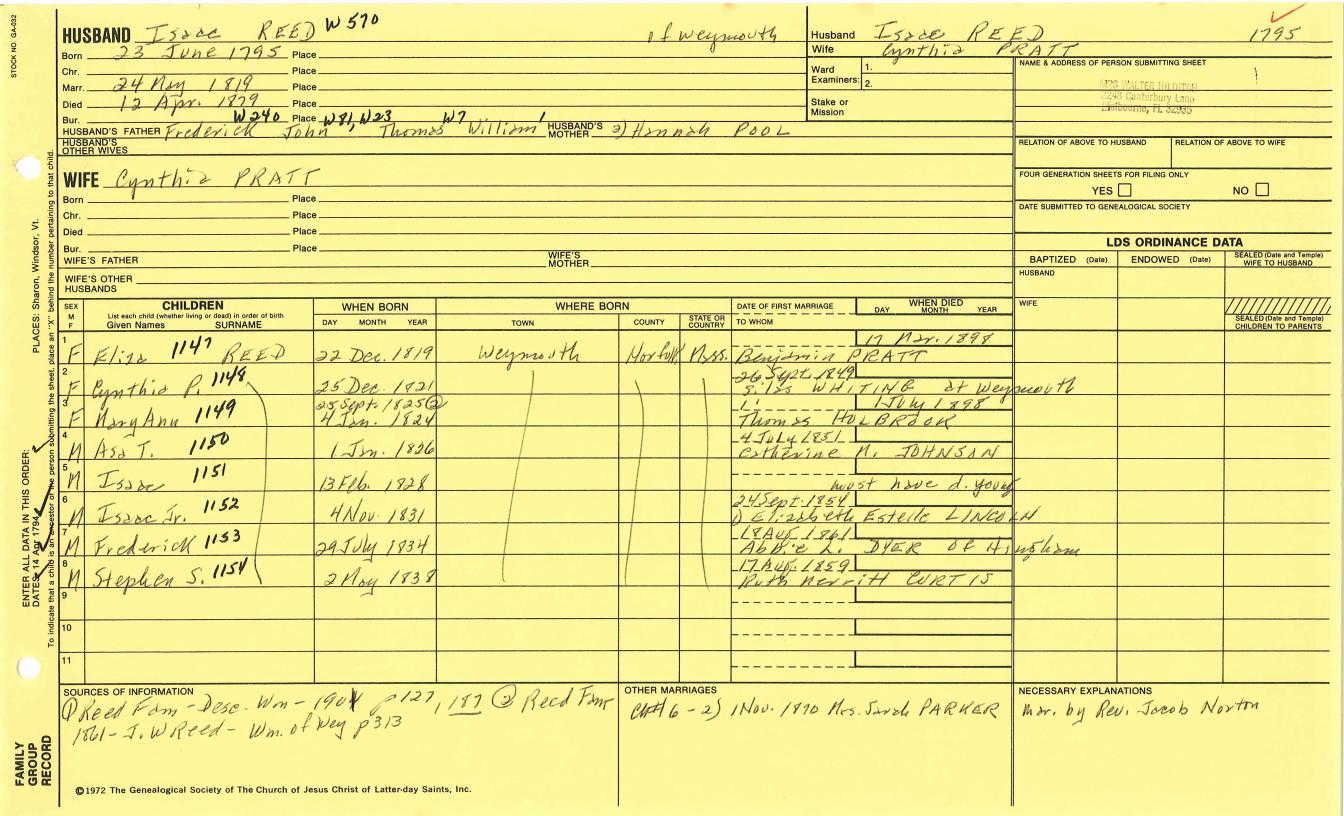 STOCK NO. GA-032
HUSBAND Isaac REED W 570 of Weymouth
Born 23 June 1795 Place
Chr. Place
Marr. 24 May 1819 Place
Died 12 Apr. 1879 Place
Bur. Place
W240 W81, W23 W7 1
HUSBAND'S FATHER Frederick John Thomas William HUSBAND'S MOTHER 2) Hannah POOL
HUSBAND'S OTHER WIVES
Husband Isaac REED 1795
Wife Cynthia PRATT
Ward Examiners: 1.
2.
Stake or Mission
NAME & ADDRESS OF PERSON SUBMITTING SHEET
MRS WALTER HILDITCH
Canterbury Lane
Melbourne, FL 32935
RELATION OF ABOVE TO HUSBAND RELATION OF ABOVE TO WIFE
FOUR GENERATION SHEETS FOR FILING ONLY
YES NO
DATE SUBMITTED TO GENEALOGICAL SOCIETY
WIFE Cynthia PRATT
Born Place
Chr. Place
Died Place
Bur. Place
WIFE'S FATHER WIFE'S MOTHER
WIFE'S OTHER HUSBANDS
LDS ORDINANCE DATA
BAPTIZED (Date) ENDOWED (Date) SEALED (Date and Temple) WIFE TO HUSBAND
HUSBAND
WIFE
SEALED (Date and Temple) CHILDREN TO PARENTS
SEX M F CHILDREN WHEN BORN WHERE BORN DATE OF FIRST MARRIAGE WHEN DIED
List each child (whether living or dead) in order of birth
Given Names SURNAME DAY MONTH YEAR TOWN COUNTY STATE OR COUNTRY TO WHOM DAY MONTH YEAR
1 17 Mar. 1898
F Eliza 1147 REED 22 Dec. 1819 Weymouth Norfolk Mass. Benjamin PRATT
2 26 Sept. 1849
F Cynthia P. 1148 25 Dec. 1821 Silas WHITING at Weymouth
3 25 Sept. 1825 ② " 1 July 1898
F Mary Ann 1149 4 Jan. 1824 Thomas HOLBROOK
4 4 July 1851
M Asa T. 1150 1 Jan. 1826 Catherine M. JOHNSAN
5
M Isaac 1151 13 Feb. 1828 must have d. young
6 24 Sept. 1854
M Isaac Jr. 1152 4 Nov. 1831 1) Elizabeth Estelle LINCOLN
7 18 Aug. 1861
M Frederick 1153 29 July 1834 Abbie L. DYER of Hingham
8 17 Aug. 1859
M Stephen S. 1154 2 May 1838 Ruth Merritt CURTIS
9
10
11
SOURCES OF INFORMATION
① Reed Fam - Desc. Wm - 1901 p127, 187 ② Reed Fam
1861 - J. W Reed - Wm. of Wey p313
OTHER MARRIAGES
Ch#6 - 2) 1 Nov. 1870 Mrs. Sarah PARKER
NECESSARY EXPLANATIONS
Mar. by Rev. Jacob Norton
©1972 The Genealogical Society of The Church of Jesus Christ of Latter-day Saints, Inc.
FAMILY GROUP RECORD
ENTER ALL DATA IN THIS ORDER:
DATES: 14 Apr 1794 PLACES: Sharon, Windsor, Vt.
To indicate that a child is an ancestor of the person submitting the sheet, place an "X" behind the number pertaining to that child.